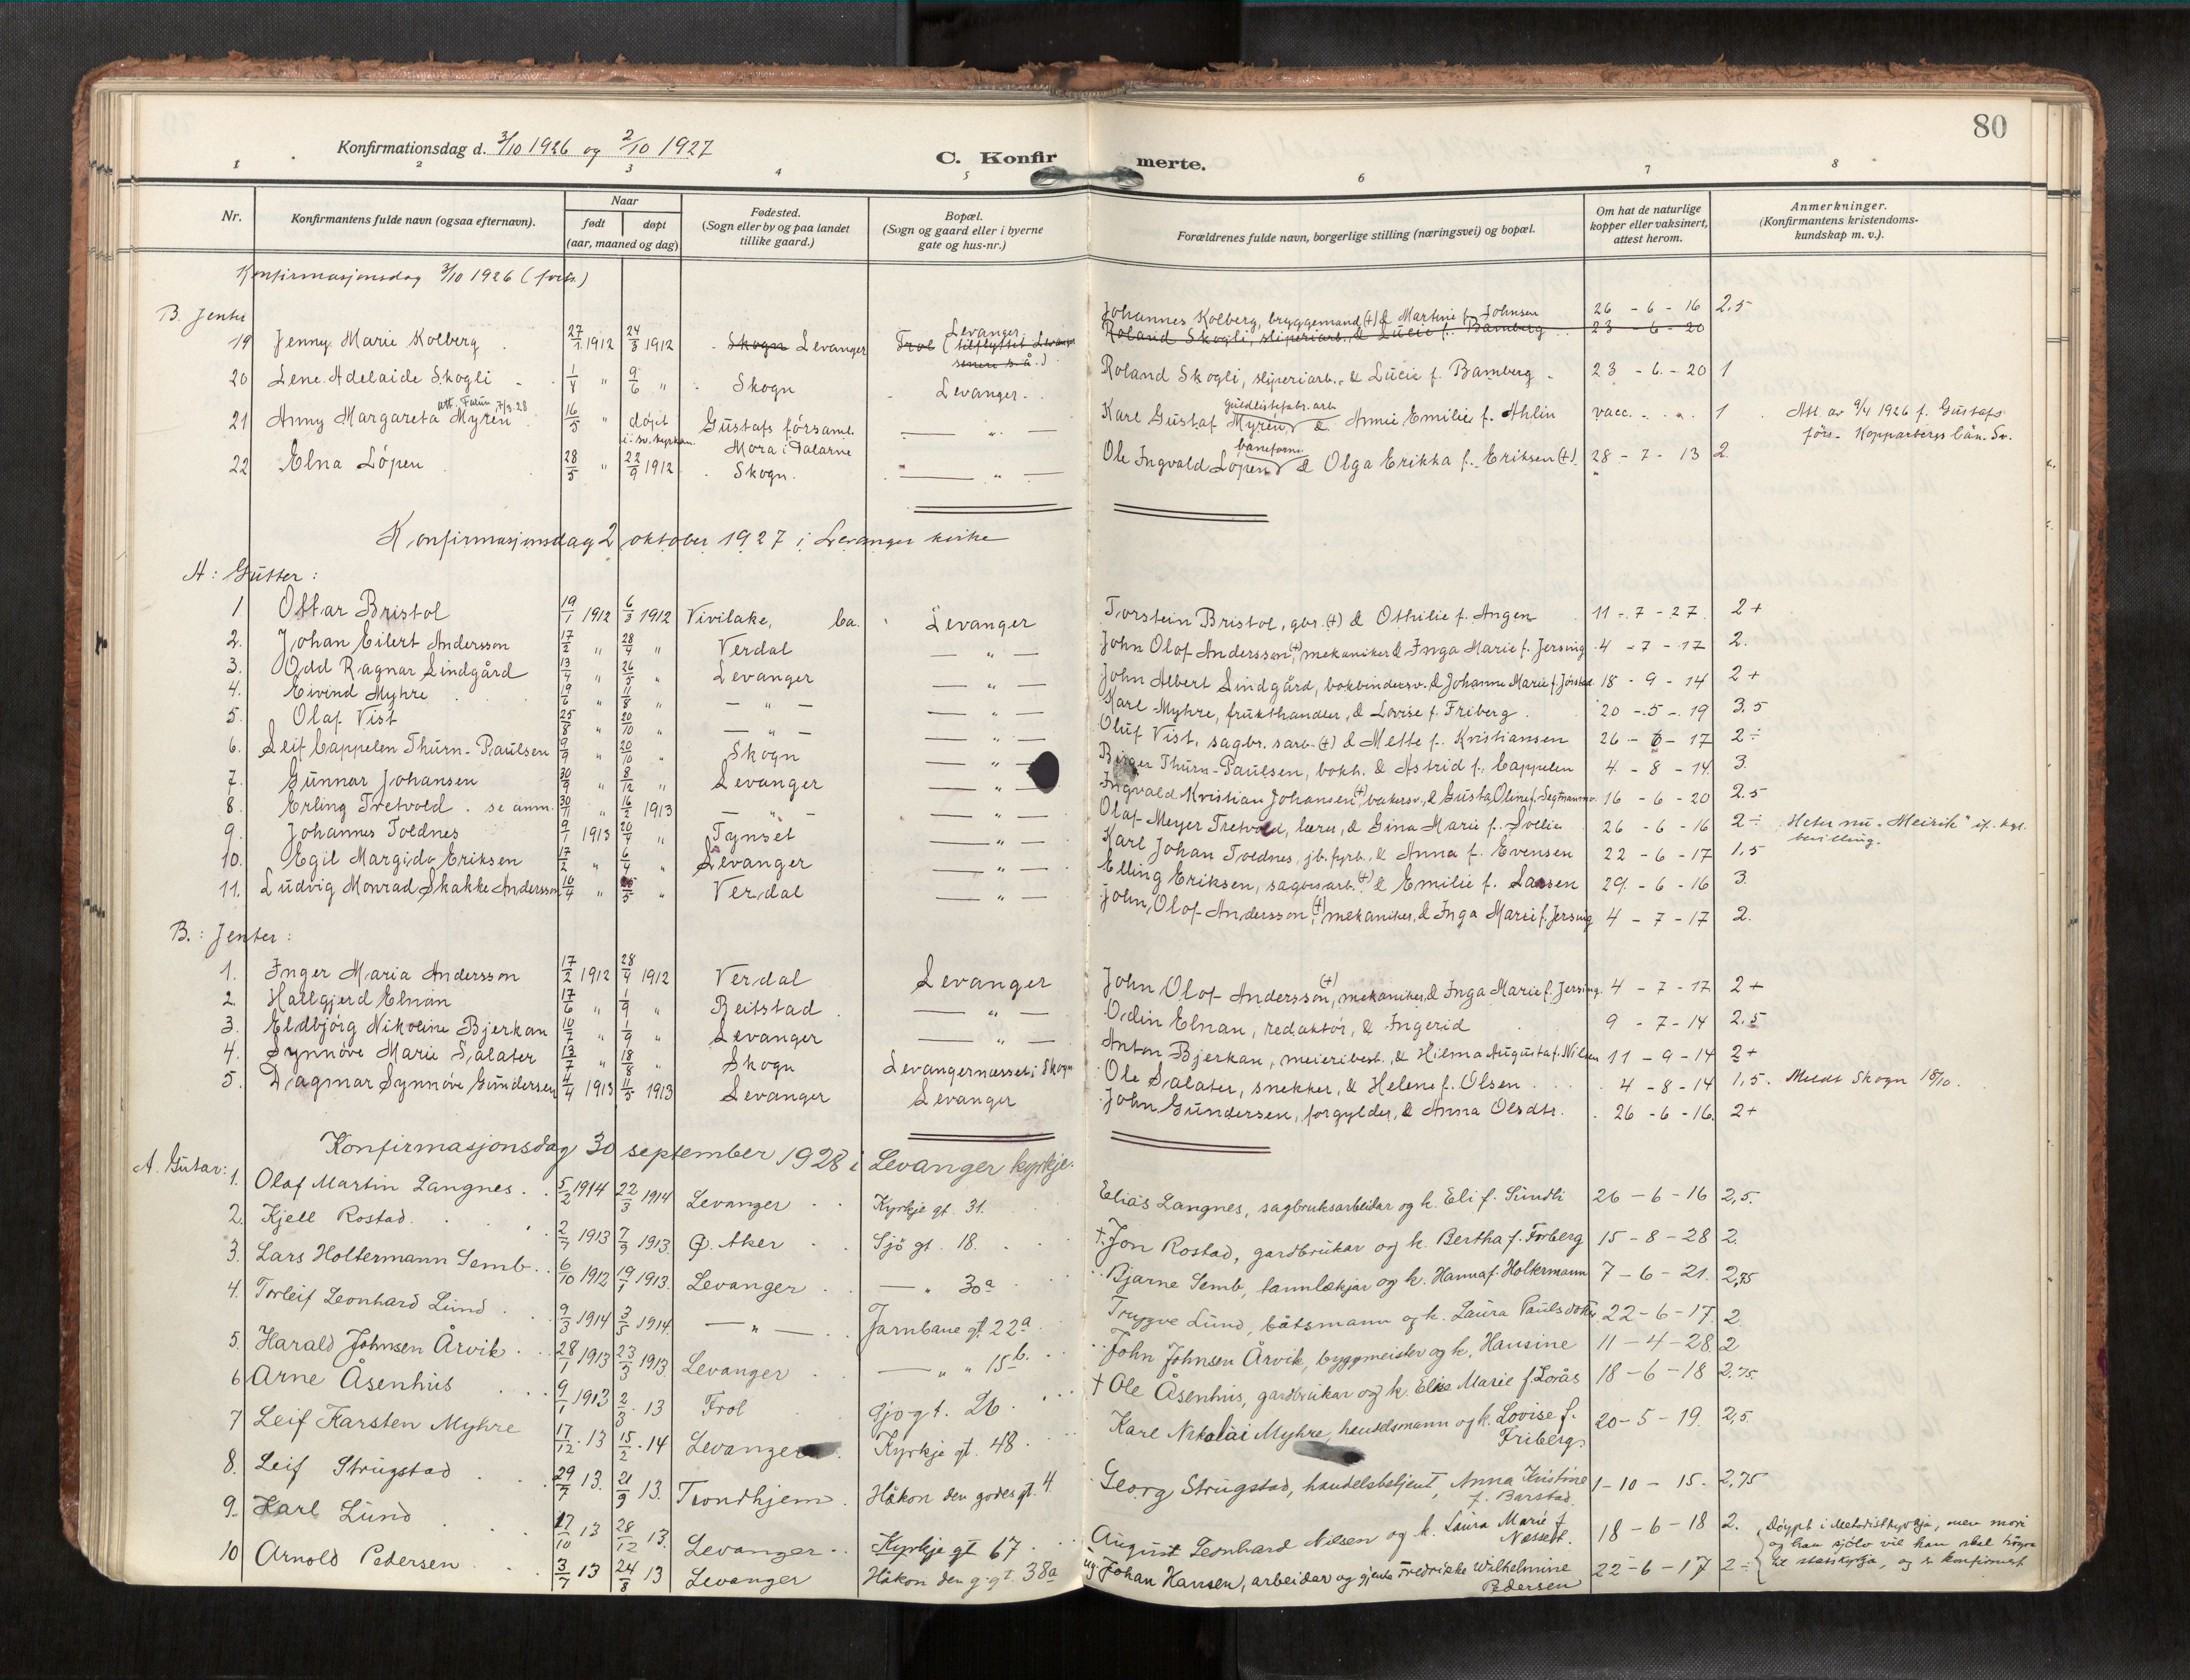 80
Konfirmationsdag d. 3/10 1926 og 2/10 1927
C. Konfir merte.
1 2 3 4 5 6 7 8
Nr. Konfirmantens fulde navn (ogsaa efternavn). Naar født døpt (aar, maaned og dag) Fødested. (Sogn eller by og paa landet tillike gaard.) Bopæl. (Sogn og gaard eller i byerne gate og hus-nr.) Forældrenes fulde navn, borgerlige stilling (næringsvei) og bopæl. Om hat de naturlige kopper eller vaksinert, attest herom. Anmerkninger. (Konfirmantens kristendoms-kundskap m. v.).
Konfirmasjonsdag 3/10 1926 (forts.)
B. Jenter
19 Jenny Marie Kolberg 27/1 1912 24/3 1912 Skogn Levanger Frol Levanger (tilflyttet Levanger senere s. å.) Johannes Kolberg, bryggemand (+) & Martine f. Johnsen 26 - 6 - 16 2,5
Roland Skogli, sliperiarb. & Lucie f. Bamberg 23 - 6 - 20
20 Lene Adelaide Skogli 1/4 " 9/6 " Skogn Levanger Roland Skogli, sliperiarb. & Lucie f. Bamberg 23 - 6 - 20 1
21 Anny Margareta Myren att. Falun 7/3.28 16/5 " døpt i sv. kyrkan Gustafs församl. Mora i Dalarne — " — Karl Gustaf Myren, guldlistefabr. arb. & Annie Emilie f. Ahlin vacc. " 1 Att. av 9/4 1926 f. Gustafs förs. Kopparbergs län. Sv.
22 Elna Löpen 28/5 " 22/9 1912 Skogn. — " — Ole Ingvald Löpen, baneform. & Olga Erikka f. Eriksen (+) 28 - 7 - 13 2
Konfirmasjonsdag 2 oktober 1927 i Levanger kirke
A: Gutter:
1 Ottar Bristol 19/1 1912 6/3 1912 Vivilake, Ca. Levanger Torstein Bristol, gbr. (+) & Othilie f. Angen 11 - 7 - 27 2+
2. Johan Eilert Andersson 17/2 " 28/4 " Verdal — " — John Olof Andersson (+), mekaniker & Inga Marie f. Jersing 4 - 7 - 17 2.
3. Odd Ragnar Lindgård 13/4 " 26/5 " Levanger — " — John Albert Lindgård, bokbindersv. & Johanne Marie f. Jørstad 18 - 9 - 14 2+
4. Eivind Myhre 19/6 " 11/8 " — " — — " — Karl Myhre, frukthandler, & Lovise f. Friberg. 20 - 5 - 19 3,5
5. Olaf Vist 25/8 " 20/10 " — " — — " — Oluf Vist, sagbr. sarb. (+) & Mette f. Kristiansen 26 - 6 - 17 2÷
6. Leif Cappelen Thurn-Paulsen 9/9 " 20/10 " Skogn — " — Birger Thurn-Paulsen, bokh. & Astrid f. Cappelen 4 - 8 - 14 3.
7. Gunnar Johansen 30/9 " 8/12 " Levanger — " — Ingvald Kristian Johansen (+), bakersv., & Gusta Oline f. Segtnansmo. 16 - 6 - 20 2.5
8. Erling Tretvold. se anm. 30/11 " 16/2 1913 — " — — " — Olaf Meyer Tretvold, lærer, & Gina Marie f. Svelia 26 - 6 - 16 2÷ Heter nu "Meirik" if. kgl. bevilling.
9. Johannes Toldnes 9/1 1913 20/4 " Tynset — " — Karl Johan Toldnes, jb. fyrb., & Anna f. Evensen 22 - 6 - 17 1,5
10. Egil Margido Eriksen 17/2 " 6/4 " Levanger — " — Elling Eriksen, sagbr. arb. (+) & Emilie f. Larsen 29 - 6 - 16 3.
11. Ludvig Monrad Skakke Andersson 16/4 " 25/5 " Verdal — " — John Olof Andersson (+), mekaniker, & Inga Marie f. Jersing 4 - 7 - 17 2.
B.: Jenter:
1. Inger Maria Andersson 17/2 1912 28/4 1912 Verdal Levanger John Olof Andersson (+), mekaniker, & Inga Marie f. Jersing. 4 - 7 - 17 2+
2 Hallgjerd Elnan 17/6 " 1/9 " Beitstad — " — Odin Elnan, redaktör, & Ingerid 9 - 7 - 14 2.5
3. Eldbjörg Nikoline Bjerkan 10/7 " 1/9 " Levanger — " — Anton Bjerkan, meieribest., & Hilma Augusta f. Nilsen 11 - 9 - 14 2+
4. Synnöve Marie Salater 13/7 " 18/8 " Skogn Levangernesset i Skogn Ole Salater, snekker, & Helene f. Olsen 4 - 8 - 14 1,5. Meldt Skogn 18/10.
5. Dagmar Synnöve Gundersen 4/4 1913 11/5 1913 Levanger Levanger John Gundersen, forgylder, & Anna Olsdtr. 26 - 6 - 16. 2+
Konfirmasjonsdag 30 september 1928 i Levanger kyrkje.
A. Gutar:
1. Olaf Martin Langnes. 5/2 1914 22/3 1914 Levanger Kyrkje gt. 31. Elias Langnes, sagbruksarbeidar og k. Eli f. Sundli 26 - 6 - 16 2,5.
2. Kjell Rostad. 2/7 1913 7/9 1913. Ø. Aker Sjö gt. 18. + Jon Rostad, gardbrukar og k. Bertha f. Forberg 15 - 8 - 28 2.
3. Lars Holtermann Semb 6/10 1912 19/1 1913. Levanger — " 30a Bjarne Semb, tannlækjar og k. Hanna f. Holtermann 7 - 6 - 21. 2,75
4. Torleif Leonhard Lund 9/3 1914 3/5 1914. — " — Jarnbane gt. 22a Trygve Lund, båtsmann og k. Laura Paulsdotter. 22 - 6 - 17. 2.
5. Harald Johnsen Årvik 28/1 1913 23/3 1913. Levanger — " " 15b. John Johnsen Årvik, byggmeister og k. Hansine 11 - 4 - 28. 2
6 Arne Åsenhus 9/1 1913 2/3. 13 Frol Sjögt. 26. + Ole Åsenhus, gardbrukar og k. Elise Marie f. Lorås 18 - 6 - 18 2,75.
7 Leif Karsten Myhre 17/12. 13 15/2. 14 Levanger Kyrkje gt. 48 Karl Nikolai Myhre, handelsmann og k. Lovise f. Friberg. 20 - 5 - 19. 2,5.
8. Leif Strugstad 29/7 13. 21/9 13. Trondhjem Håkon den godes gt. 4. Georg Strugstad, handelsbetjent, Anna Kristine f. Barstad. 1 - 10 - 15. 2,75
9. Karl Lund 17/10 13 28/12 13. Levanger Kyrkje gt 67 August Leonhard Nilsen og k. Laura Marie f. Nessett. 18 - 6 - 18 2. Döypt i Metodistkyrkja, men mori og han sjölv vil han skal höyra til statskyrkja, og er konfirmert
10 Arnold Pedersen 3/7 13 24/8 13 Levanger Håkon den g. gt. 38a ug. Johan Hansen, arbeidar og gjente Fredrikke Wilhelmine Pedersen 22 - 6 - 17 2÷